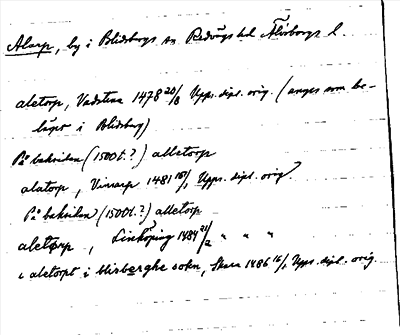 Alarp, by i Blidsbergs sn Redvägs hd Älvsborgs l.
aletorp, Vadstena 1478 20/8 Upps. dipl. orig. (anges som be-
läget i Blidsberg)
På baksidan (1500 t.?) alletorp
alatorp, Vinsarp 1481 18/1 Upps. dipl. orig
På baksidan (1500 t.?) alletorp
aletorp, Linköping 1484 21/2 " " "
i aletorpt i blisberghe sokn, Skara 1486 16/1 Upps. dipl. orig.